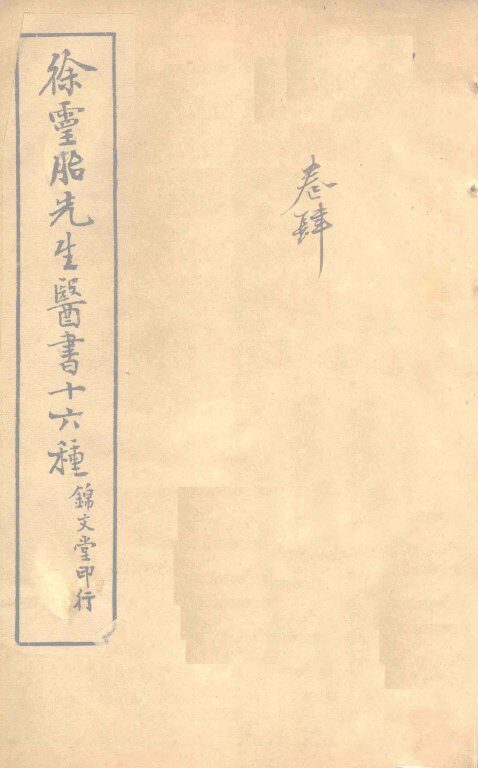 卷肆
徐靈胎先生醫書十六種
錦文堂印行